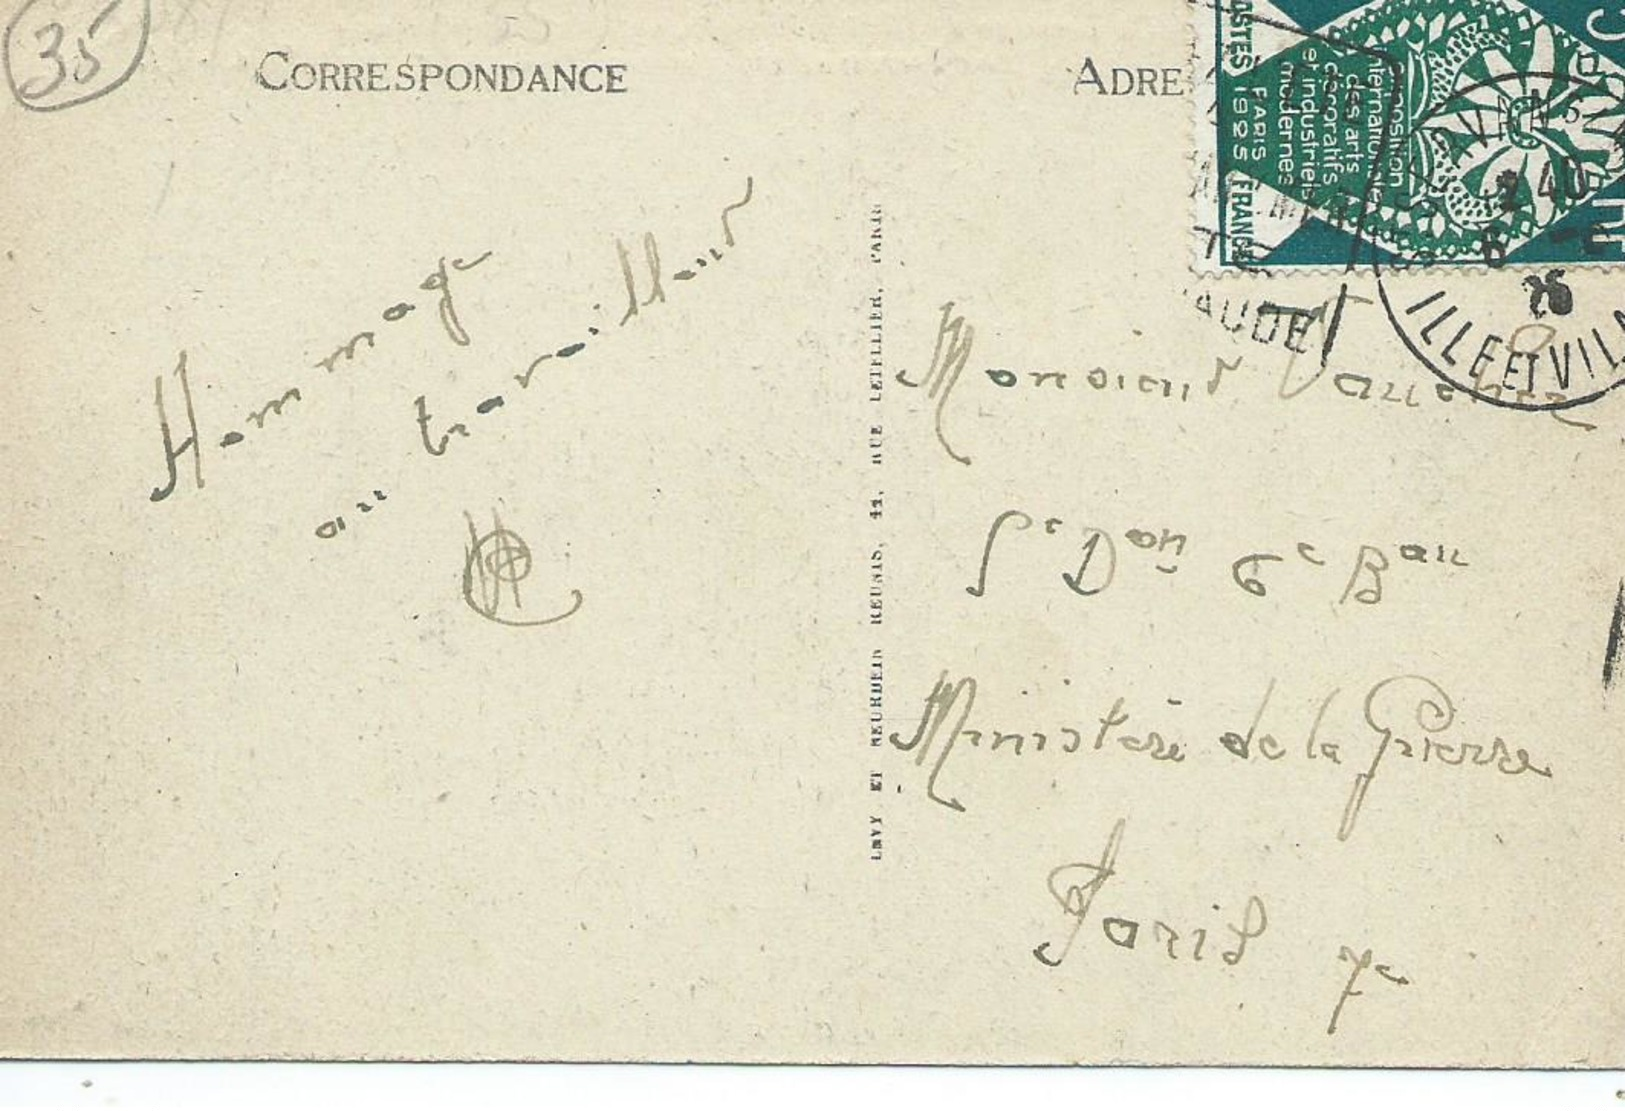 35
CORRESPONDANCE
ADRE
POSTES
Exposition
internationale
des arts
décoratifs
et industriels
modernes
PARIS
1925
FRANCE
12 40
6
26
ILLE ET VIL
AUDE
Hommage
au travailleur
LEVY ET NEURDEIN REUNIS, 44, RUE LETELLIER, PARIS
Monsieur
5e Don 6e Bau
Ministère de la Guerre
Paris 7e